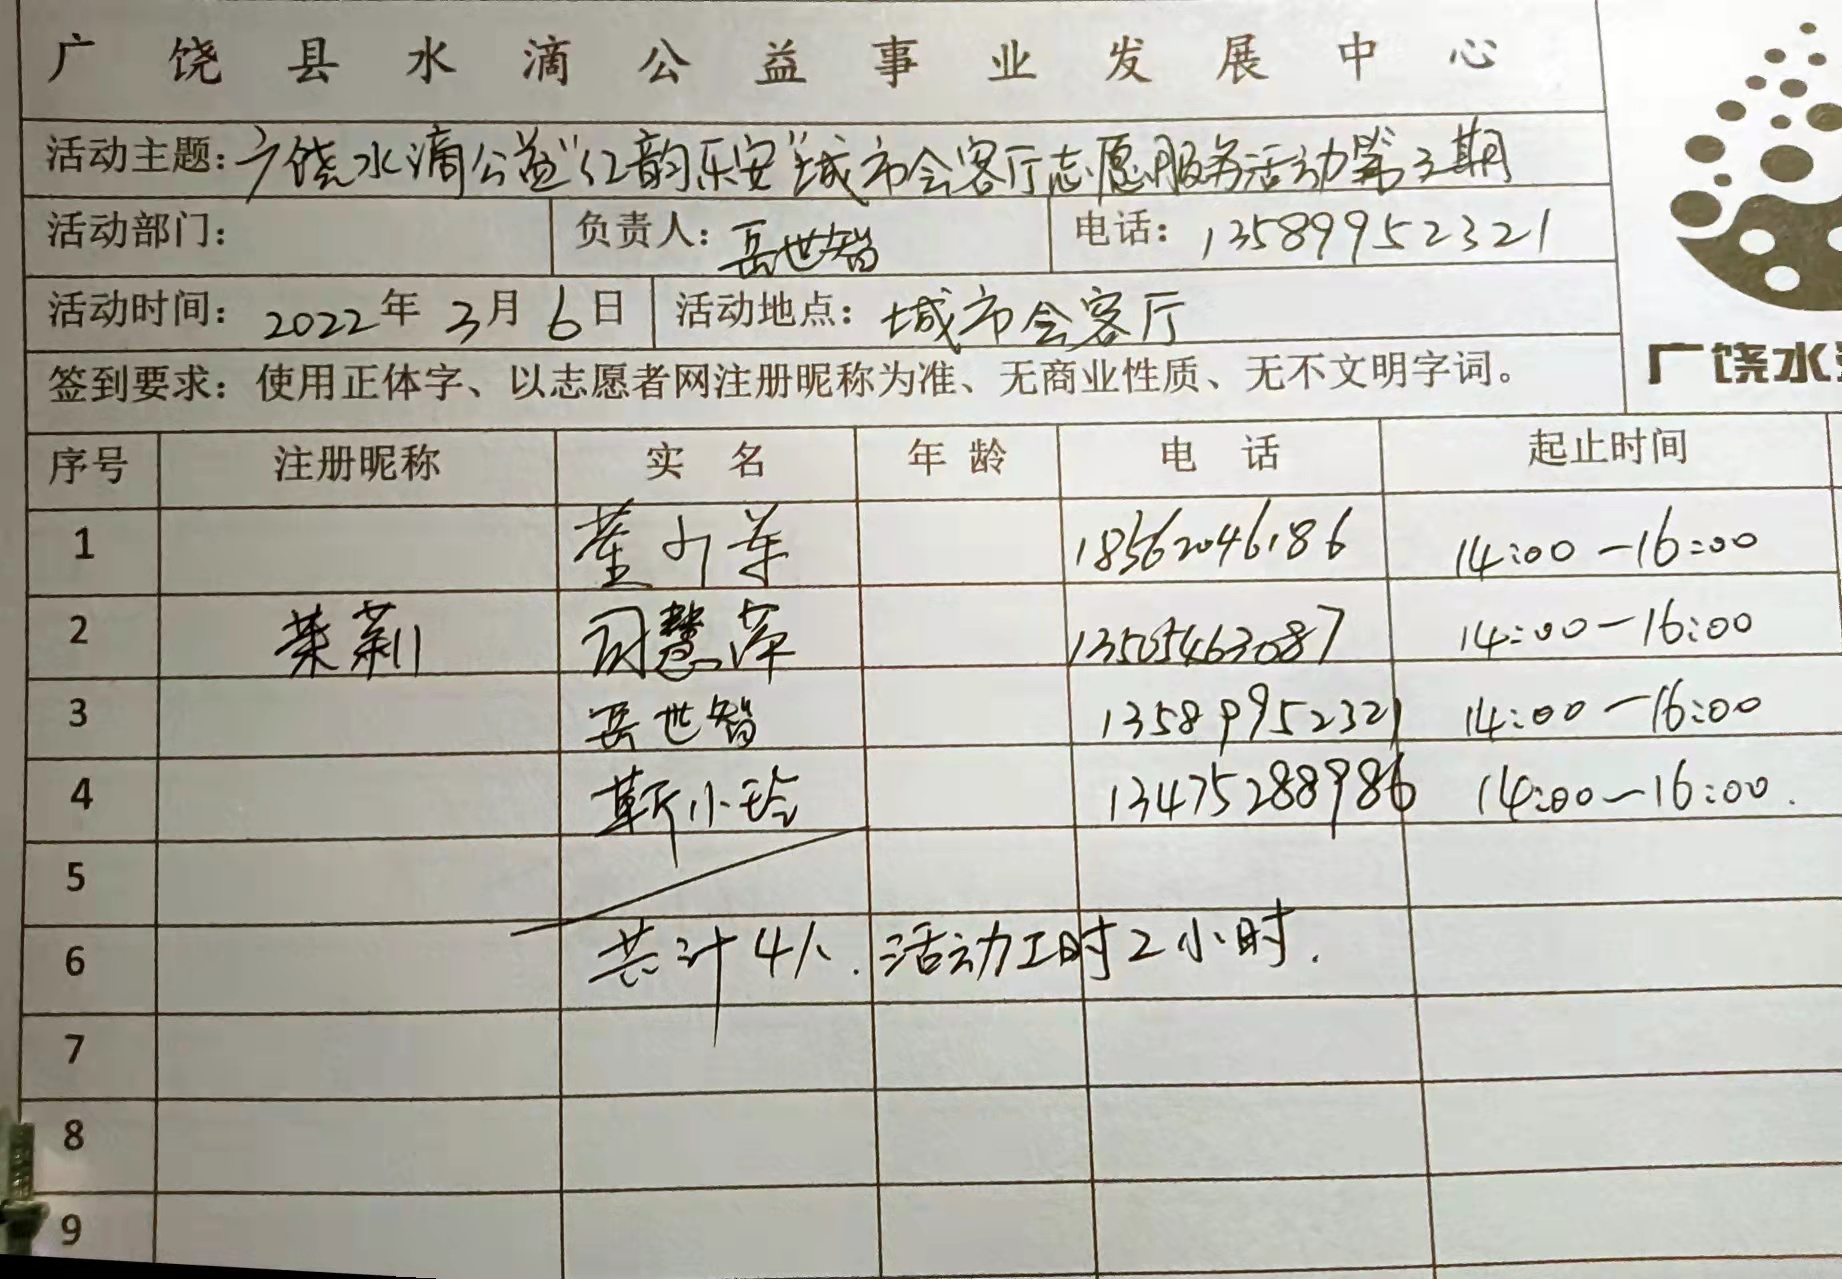 广饶县水滴公益事业发展中心
活动主题:广饶水滴公益"红韵乐安"城市会客厅志愿服务活动第3期
活动部门: 负责人:岳世智 电话:13589952321
活动时间:2022年3月6日 活动地点:城市会客厅
签到要求:使用正体字、以志愿者网注册昵称为准、无商业性质、无不文明字词。
广饶水
序号 注册昵称 实名 年龄 电话 起止时间
1 18562046186 14:00-16:00
2 茉莉 司慧萍 13505463087 14:00-16:00
3 岳世智 13589952321 14:00-16:00
4 靳小玲 13475288986 14:00-16:00.
5
6 共计4人.活动工时2小时.
7
8
9